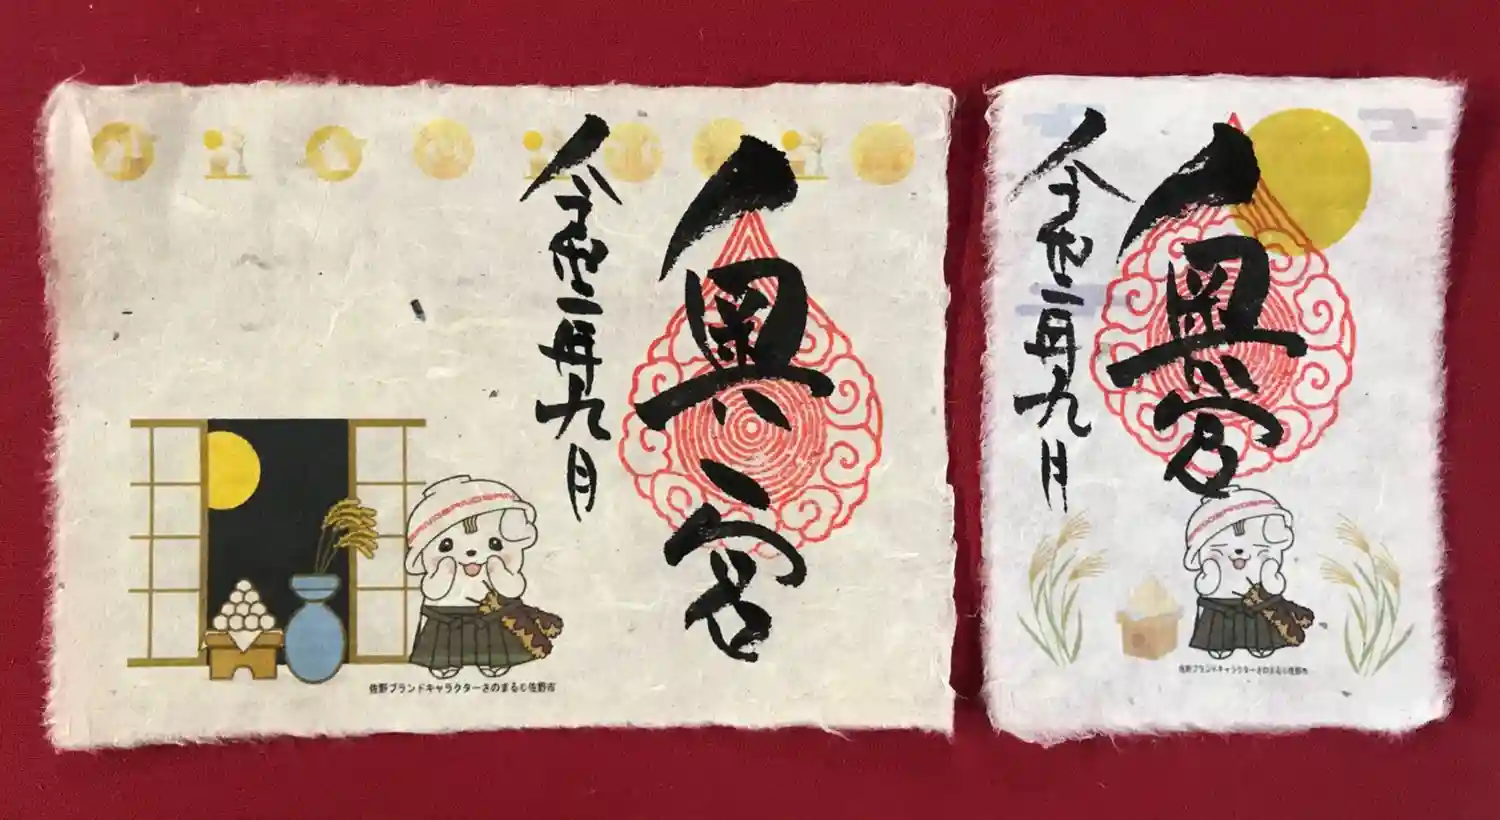 奥宮
令和二年九月
佐野ブランドキャラクターさのまる©佐野市
奥宮
令和二年九月
佐野ブランドキャラクターさのまる©佐野市